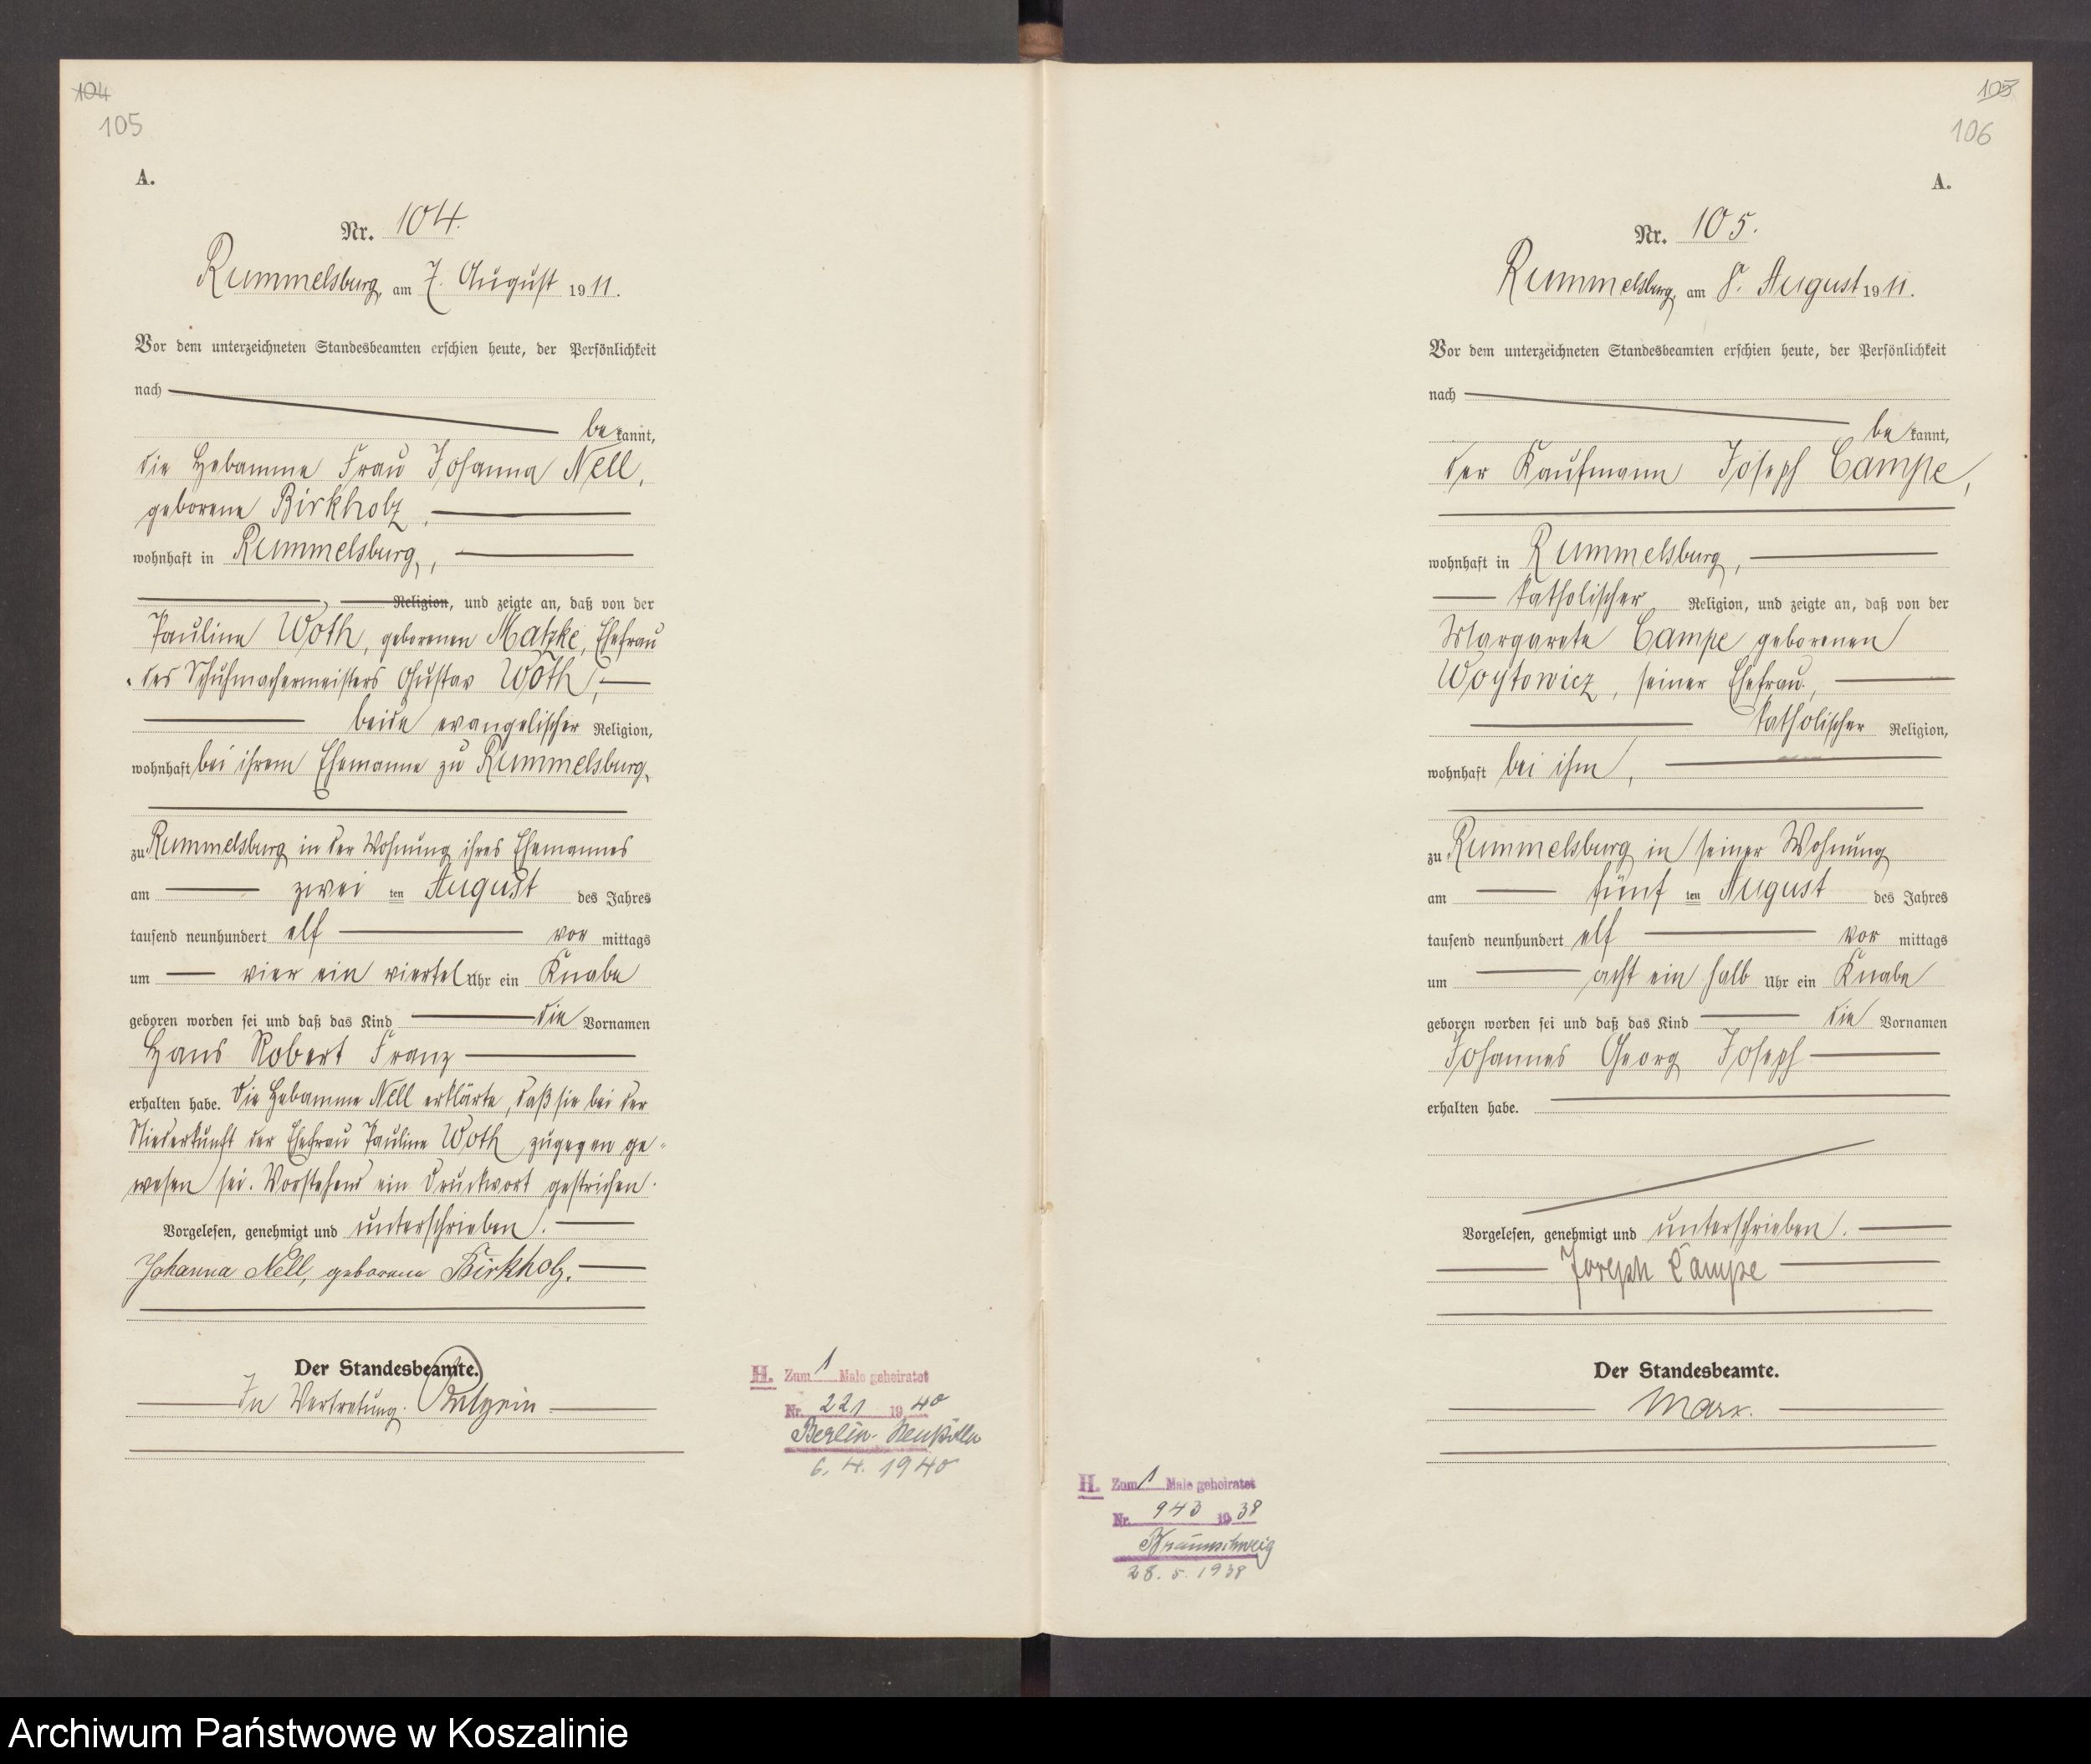 104
105
A.
Nr. 104.
Rummelsburg, am 7. August 1911.
Vor dem unterzeichneten Standesbeamten erschien heute, der Persönlichkeit
nach
bekannt,
die Hebamme Frau Johanna Nell,
geborene Birkholz,
wohnhaft in Rummelsburg,
Religion, und zeigte an, daß von der
Pauline Woth, geborenen Matzke, Ehefrau
des Schuhmachermeisters Gustav Woth,
beide evangelischer Religion,
wohnhaft bei ihrem Ehemanne zu Rummelsburg,
zu Rummelsburg in der Wohnung ihres Ehemannes
am zwei ten August des Jahres
tausend neunhundert elf vor mittags
um vier ein viertel Uhr ein Knabe
geboren worden sei und daß das Kind die Vornamen
Hans Robert Franz
erhalten habe. Die Hebamme Nell erklärte, daß sie bei der
Niederkunft der Ehefrau Pauline Woth zugegen ge-
wesen sei. Vorstehend ein Druckwort gestrichen.
Vorgelesen, genehmigt und unterschrieben.
Johanna Nell, geborene Birkholz.
Der Standesbeamte.
In Vertretung.
H. Zum 1 Male geheiratet
Nr. 221 1940
Berlin-Neukölln
6. 4. 1940
105
106
A.
Nr. 105.
Rummelsburg, am 8. August 1911.
Vor dem unterzeichneten Standesbeamten erschien heute, der Persönlichkeit
nach
bekannt,
der Kaufmann Joseph Campe,
wohnhaft in Rummelsburg,
katholischer Religion, und zeigte an, daß von der
Margarete Campe geborenen
Woytowicz, seiner Ehefrau,
katholischer Religion,
wohnhaft bei ihm,
zu Rummelsburg in seiner Wohnung
am fünf ten August des Jahres
tausend neunhundert elf vor mittags
um acht ein halb Uhr ein Knabe
geboren worden sei und daß das Kind die Vornamen
Johannes Georg Joseph
erhalten habe.
Vorgelesen, genehmigt und unterschrieben.
Joseph Campe
Der Standesbeamte.
Marx.
H. Zum 1 Male geheiratet
Nr. 943 1938
Braunschweig
28. 5. 1938
Archiwum Państwowe w Koszalinie